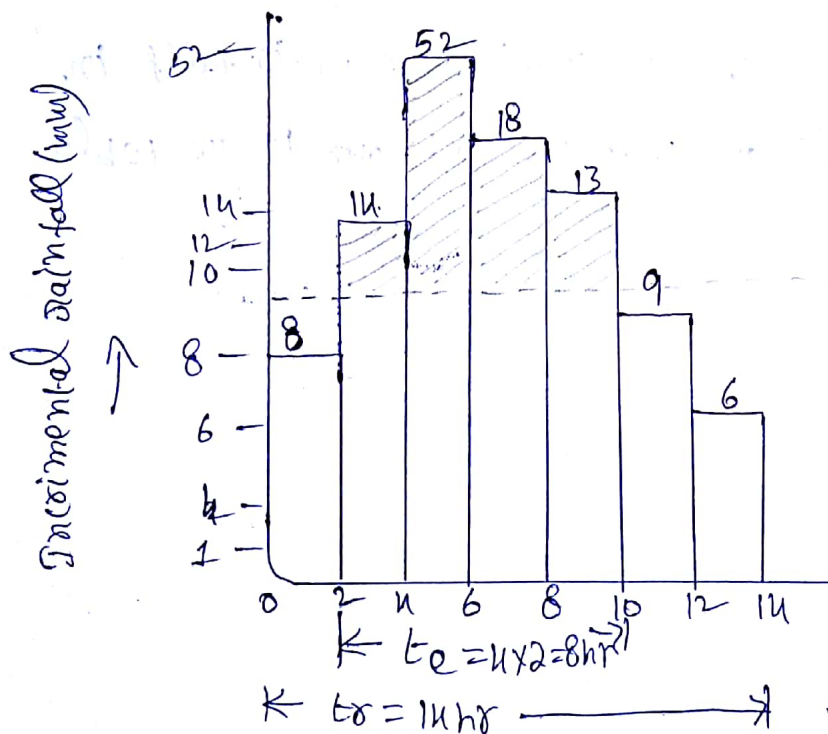 Incrimental rainfall (mm)
52
14
12
10
8
6
4
1
8
14
52
18
13
9
6
0 2 4 6 8 10 12 14
te = 4x2=8hr
tr = 14hr